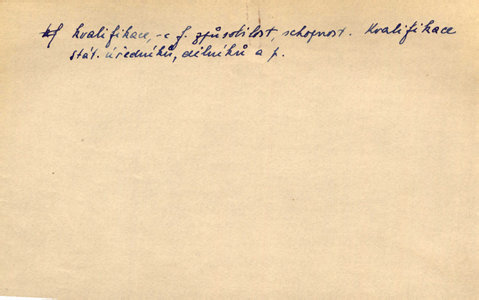 kvalifikace, -e f. způsobilost, schopnost. Kvalifikace
stát. úředníků, dělníků a p.